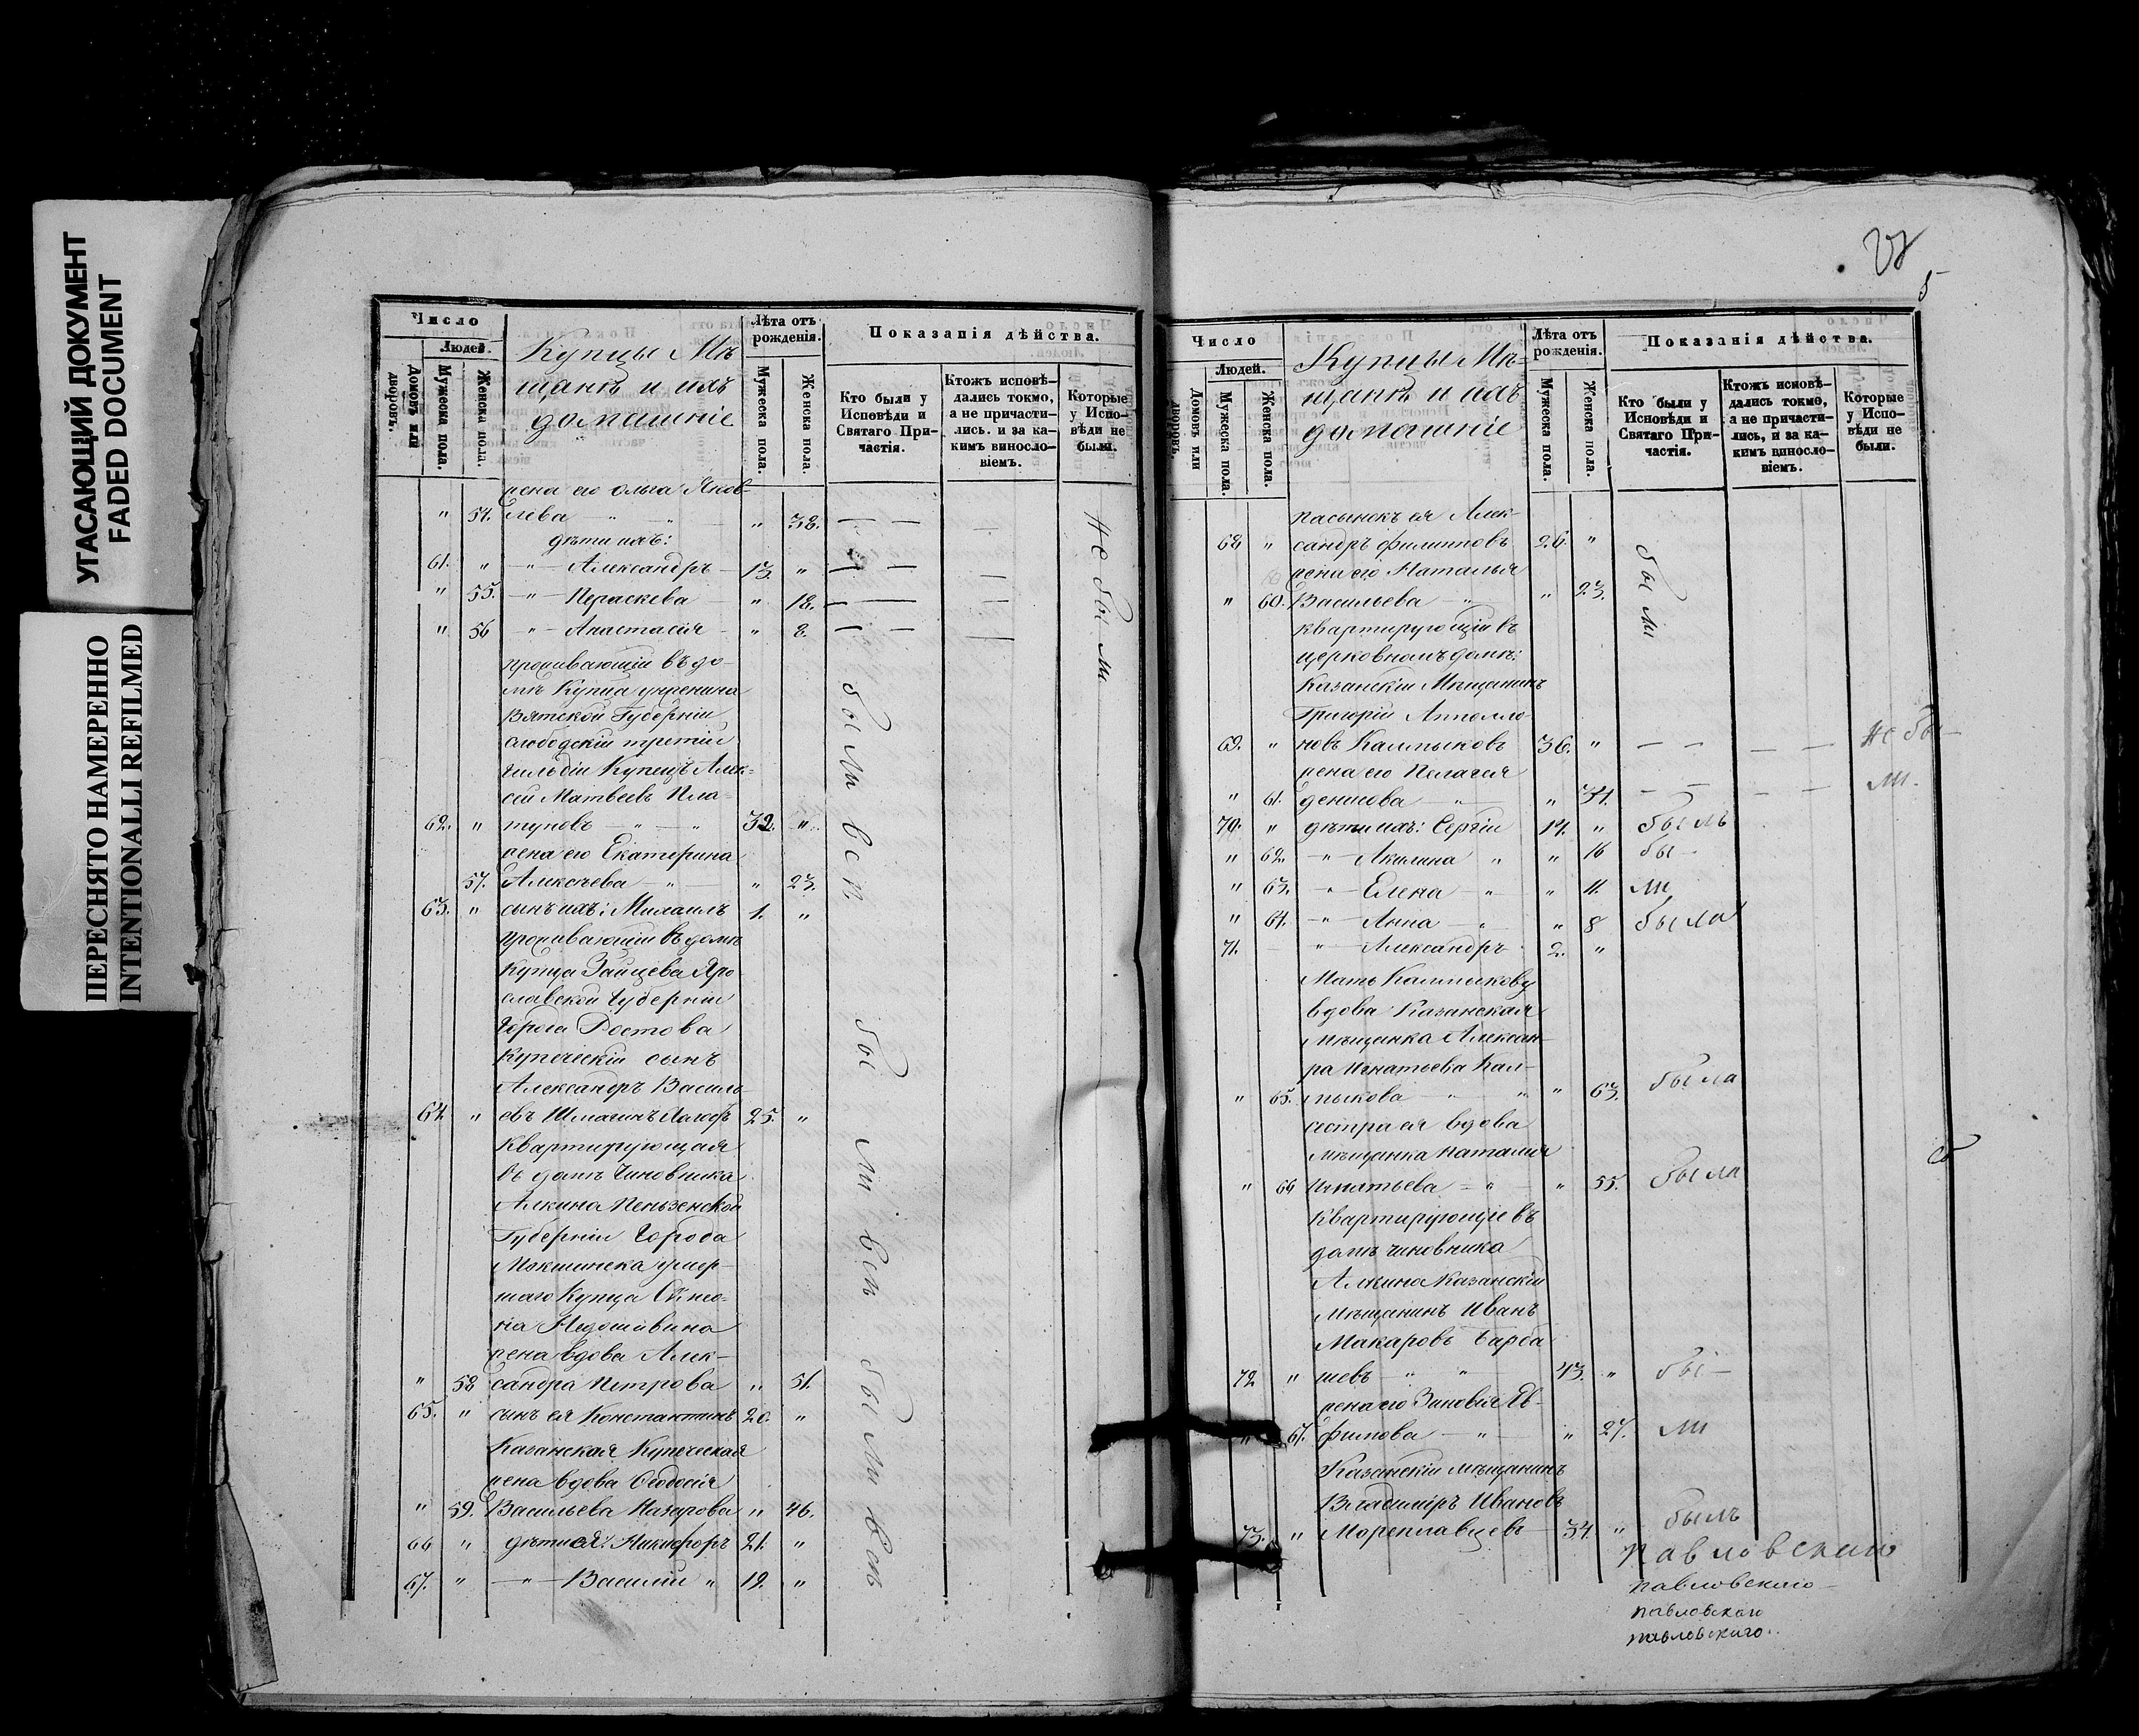 УГАСАЮЩИЙ ДОКУМЕНТ
FADED DOCUMENT
ПЕРЕСНЯТО НАМЕРЕННО
INTENTIONALLI REFILMED
Число
Людей.
Домовъ или дворовъ.
Мужеска пола.
Женска пола.
Купцы Мѣ
щанѣ и ихъ
домашніе
Лѣта отъ рожденія.
Мужеска пола.
Женска пола.
Показанія дѣйства.
Кто были у
Исповѣди и
Святаго При-
частія.
Ктожъ исповѣ-
дались токмо,
а не причасти-
лись. и за ка-
кимъ виносло-
віемъ.
Которые
у Испо-
вѣди не
были.
жена его Ольга Яков-
" 54. лева " " " 38.
дѣти ихъ:
61. " " Александръ 13. "
" 55. " Параскева " 18.
" 56 " Анастасія " 8.
не были
проживающій въ до-
мѣ Купца
Вятской Губерніи
слободскій третій
гильдіи Купецъ Алек-
сій Матвеевъ Пла-
62. " туновъ " " 32. "
жена его Екатерина
57. Алексѣева " " 23.
63. " сынъ ихъ: Михаилъ 1. "
были всѣ
проживающій въ домѣ
Купца Зайцева Яро-
славской Губерніи
Города Ростова
Купеческій сынъ
Александръ Василь-
64. " евъ 25. "
Квартирующая
въ домѣ Чиновника
Алкина Пензенской
Губерніи Города
умер-
шаго Купца
жена вдова Алек-
" 58 сандра Петрова " 51.
65. " сынъ ея Константинъ 20. "
были всѣ
Казанская Купеческая
жена вдова Ѳеодосія
" 59. Васильева Назарова " 46.
66 " дѣти ея: Никифоръ 21. "
67. " " Василій " 19. "
были всѣ
5
Число
Людей.
Домовъ или дворовъ.
Мужеска пола.
Женска пола.
Купцы Мѣ-
щанѣ и ихъ
домашніе
Лѣта отъ рожденія.
Мужеска пола.
Женска пола.
Показанія дѣйства.
Кто были у
Исповѣди и
Святаго При-
частія.
Ктожъ исповѣ-
дались токмо,
а не причасти-
лись, и за ка-
кимъ виносло-
віемъ.
Которые
у Испо-
вѣди не
были.
пасынекъ ея Алек-
68 " сандръ Филипповъ 26. "
жена его Наталья
" 60. Васильева " " 23.
были
квартирующіи въ
церковномъ домѣ:
Казанскіи Мѣщанинъ
Григорій Апполло-
69. " новъ Калмыковъ 36. " не бы-
жена его Пелагея
" 61. Денисова " " 34. ли.
70. " дѣти ихъ: Сергіи 14. " былъ
" 62. " Акилина " " 16 бы-
" 63. " Елена " " 11. ли
" 64. " Анна " " 8 была
71. " Александръ 2. "
Мать Калмыкову
вдова Казанская
мѣщанка Алексан-
ра Игнатьева Кал-
" 65. мыкова " " " 63. была
сестра ея вдова
мѣщанка Наталия
" 66 Игнатьева " " 55. была
Квартирующіе въ
домѣ чиновника
Алкина Казанскіи
мѣщанинъ Иванъ
Макаровъ Барба
72 " шевъ " " 43. " бы-
жена его Зиновія Ев-
" 67. фимова " " 27. ли
Казанскіи мѣщанинъ
Владиміръ Ивановъ
73. " Мореплавцевъ 34. " былъ
Павловскаго
павловскаго
павловскаго
павловскаго.